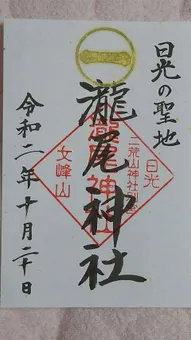 日光の聖地
瀧尾神社
令和二年十月二十日
日光
二荒山神社別宮
瀧尾神社
女峰山